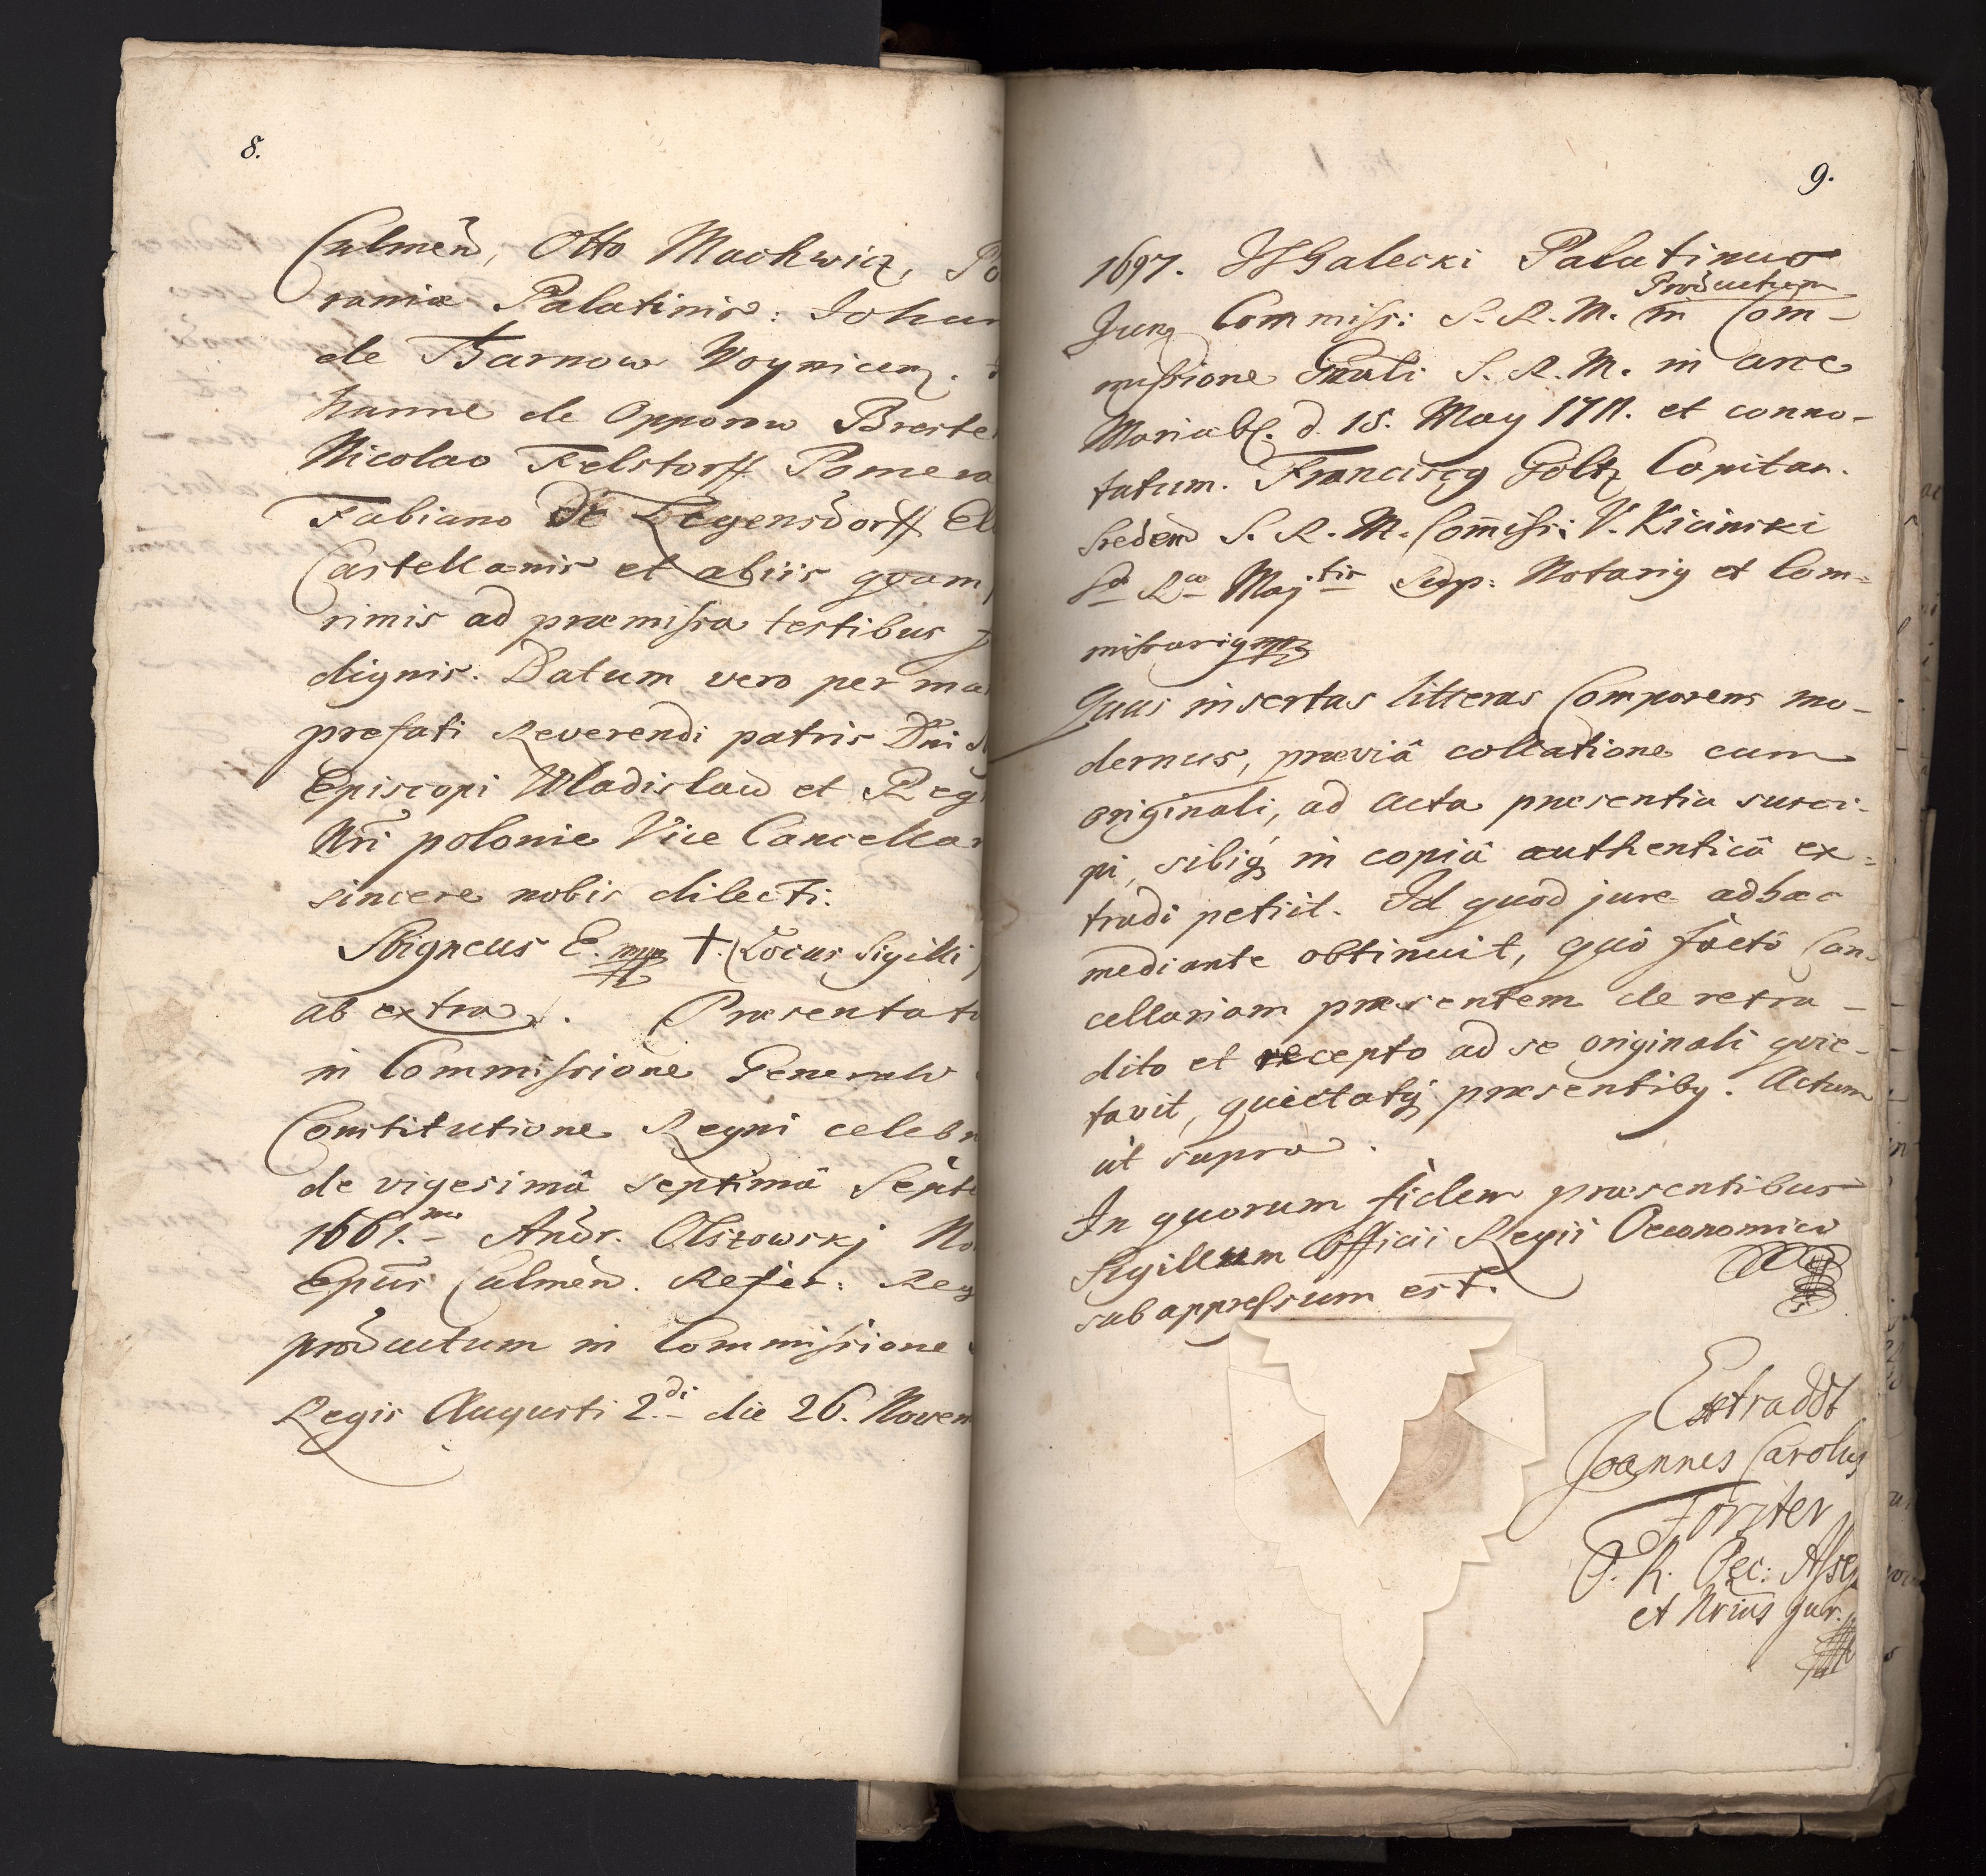 8.
Culmen̄, Otto Machwicz, Po
raniæ Palatinis: Johan
de Tarnow Woynicen.
hanne de Opporow Breste
Nicolao Felstorff Pomera
Fabiano De Legensdorff El
Castellanis et aliis quam
rimis ad præmissa testibus
dignis. Datum vero per ma
prefati Reverendi patris Dn̄i
Episcopi Wladislaw et Reg
Nr̄i polonie Vice Cancella
sincere nobis dilecti.
Sbigneus E. mpp †. (Locus Sigilli
ab extra). Præsentat
in Commissione Generali
Constitutione Regni celebr
de vigesimâ septimâ Septe
1661.mo Andr. Olszowskj No
Epūs Culmen. Refer: Reg
productum in Commissione
Regis Augusti 2.di die 26. Novem
9.
1697. Galecki Palatinus
Productum
Jung Commiss: S. R. M. in Com-
missione Gn̄ali S. R. M. in arce
Mariæb. d. 15. May 1711. et conno-
tatum. Franciscq Goltz Capitan.
Sreden S. R. M. Com̄iss: V. Kicinski
Sæ Ræ Majtis Notariq et Com=
missariqmpp
Quas insertas litteras Comparens mo-
dernus, præviâ collatione cum
originali, ad acta præsentia susci-
pi, sibiq in copiâ authenticâ ex=
tradi petiit. Id quod jure adhæc
mediante obtinuit, quô factô Can-
cellariam præsentem de retra-
dito et recepto ad se originali quie-
tavit, quietatq præsentibq. Actum
ut supra.
In quorum fidem præsentibus
Sigillum Officii Regii Oeconomici
subappressum est.
Extraddt
Joannes Carolus
Forster
O. R. Oec: Asses
et Nrius Jur.